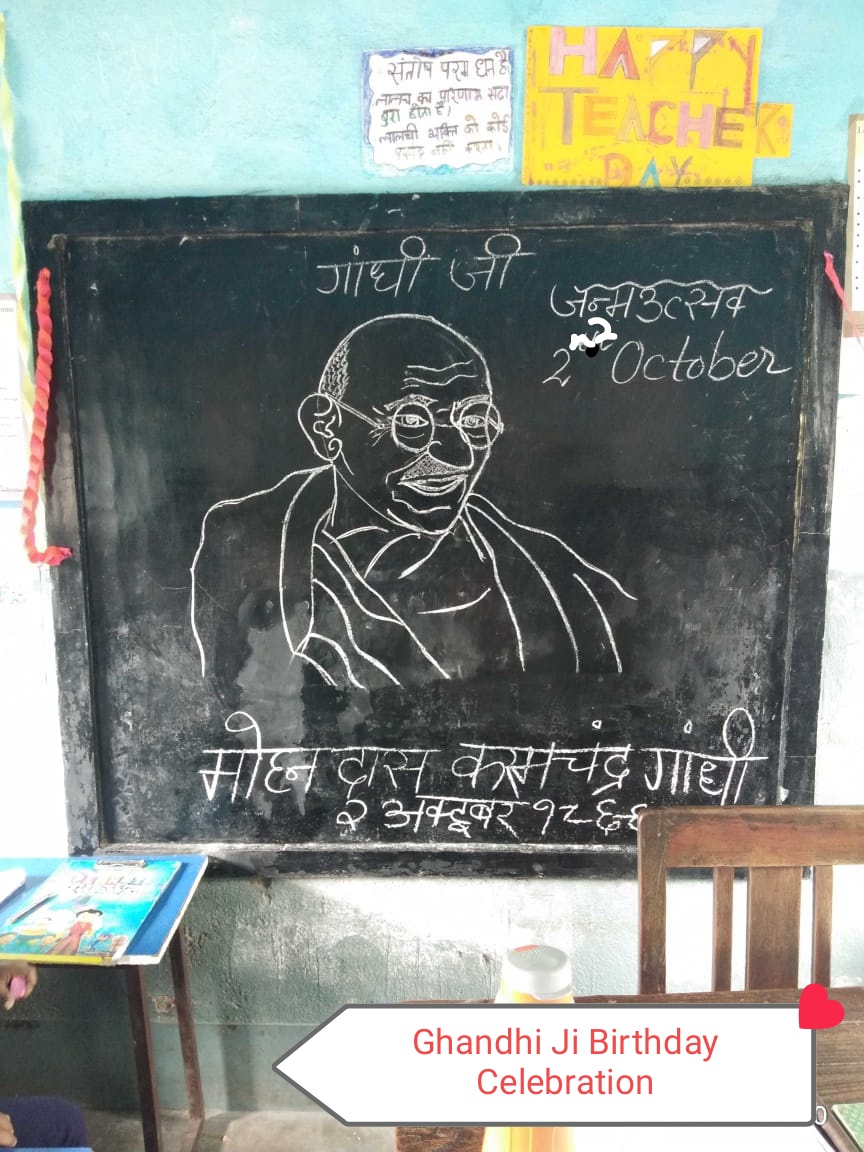 संतोष परम धर्म है।
लालच का परिणाम सदा
बुरा होता है।
लालची व्यक्ति को कोई
पसंद नहीं करता।
HAPPY
TEACHER
DAY
गांधी जी
जन्मउत्सव
2nd October
मोहन दास करमचंद्र गांधी
२ अक्टूबर १८६९
Ghandhi Ji Birthday
Celebration